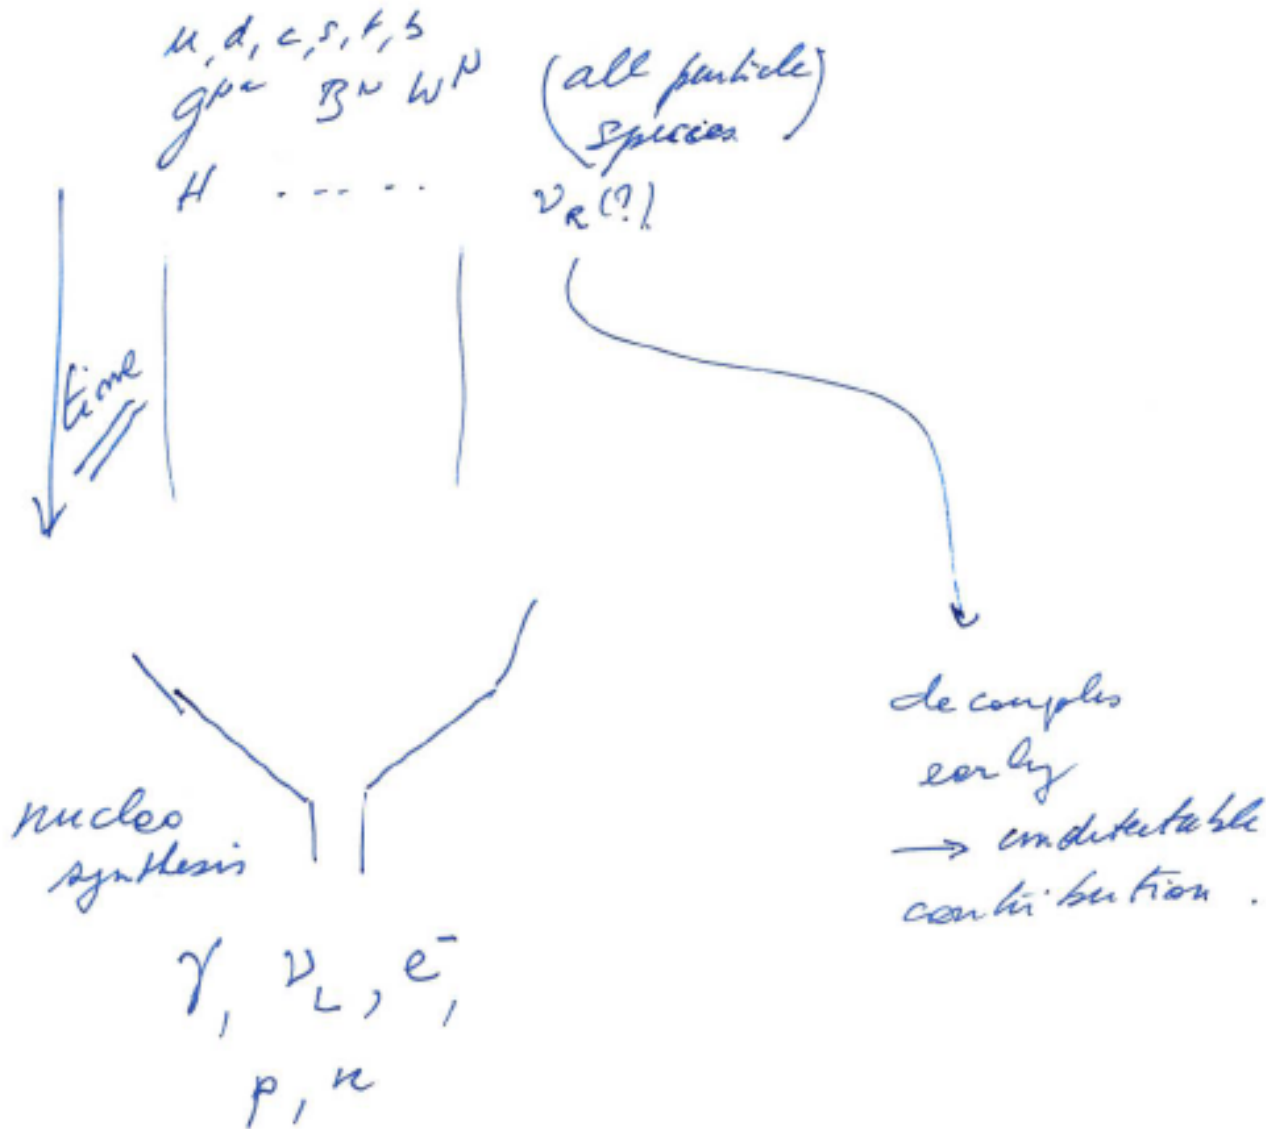 u, d, c, s, t, b
g^{μa} B^μ W^μ (all particle
species)
H ------ ν_R (?)
time
nucleo
synthesis
γ, ν_L, e^-,
p, n
decouples
early
→ undetectable
contribution.